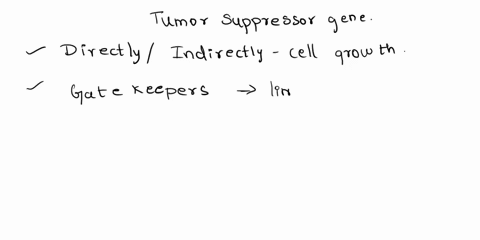 Tumor Suppressor gene.
✓ Directly / Indirectly - cell growth.
✓ Gate keepers → lin